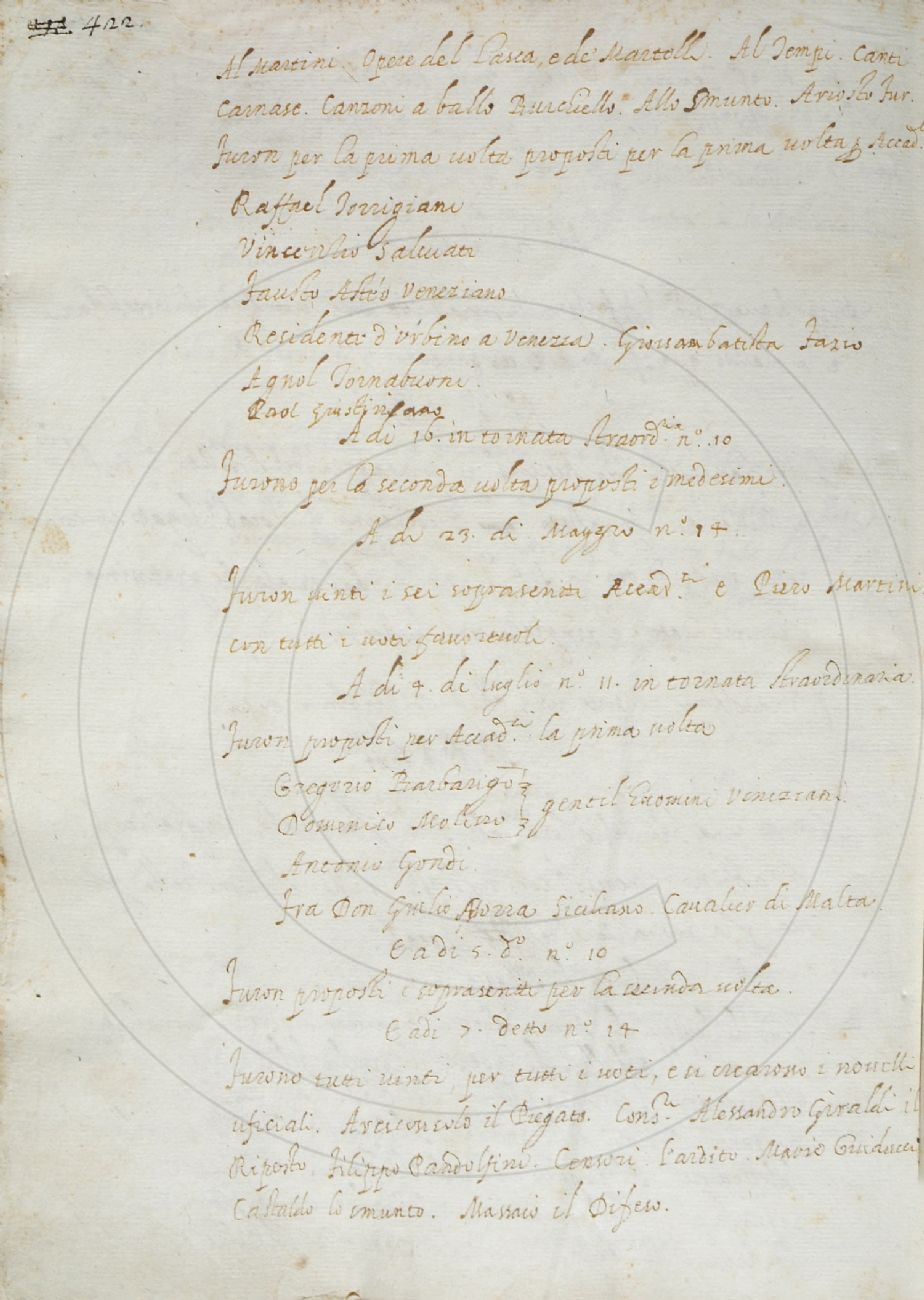 422.
Al Martini. Opere del Lasca, e de' Martelli. Al Tempi. Canti
Carnasc. Canzoni a ballo Burchiello. Allo Smunto. Ariosto Fur.
Furon per la prima volta proposti per la prima volta p Accad.ci
Raffael Torrigiani
Vincentio Salviati
Fausto Asteo Veneziano
Residente d'Urbino a Venezia. Giovambatista Fazio
Agnol Tornabuoni.
Paol Giustiniano
A di 16. in tornata straord.ria n.º 10
Furono per la seconda volta proposti i medesimi.
A di 23. di Maggio n.º 14.
Furon vinti i sei soprascritti Accad.ci e Piero Martini
con tutti i voti favorevoli.
A di 4. di luglio n.º 11. in tornata straordinaria.
Furon proposti per Accad.ci la prima volta
Gregorio Barbarigo
Domenico Molino gentil huomini Viniziani
Antonio Gondi.
Fra Don Giulio Siciliano Cavalier di Malta.
E a di 5. d.º n.º 10
Furon proposti i soprascritti per la seconda volta.
E adi 7. detto n.º 14
Furono tutti vinti per tutti i voti, e si crearono i novelli
uficiali. Arciconsolo il Piegato. Cons.ri Alessandro Giraldi il
Riposto, Filippo Pandolfini. Censori l'ardito. Mario Guiducci
Castaldo lo smunto. Massaio il Difeso.